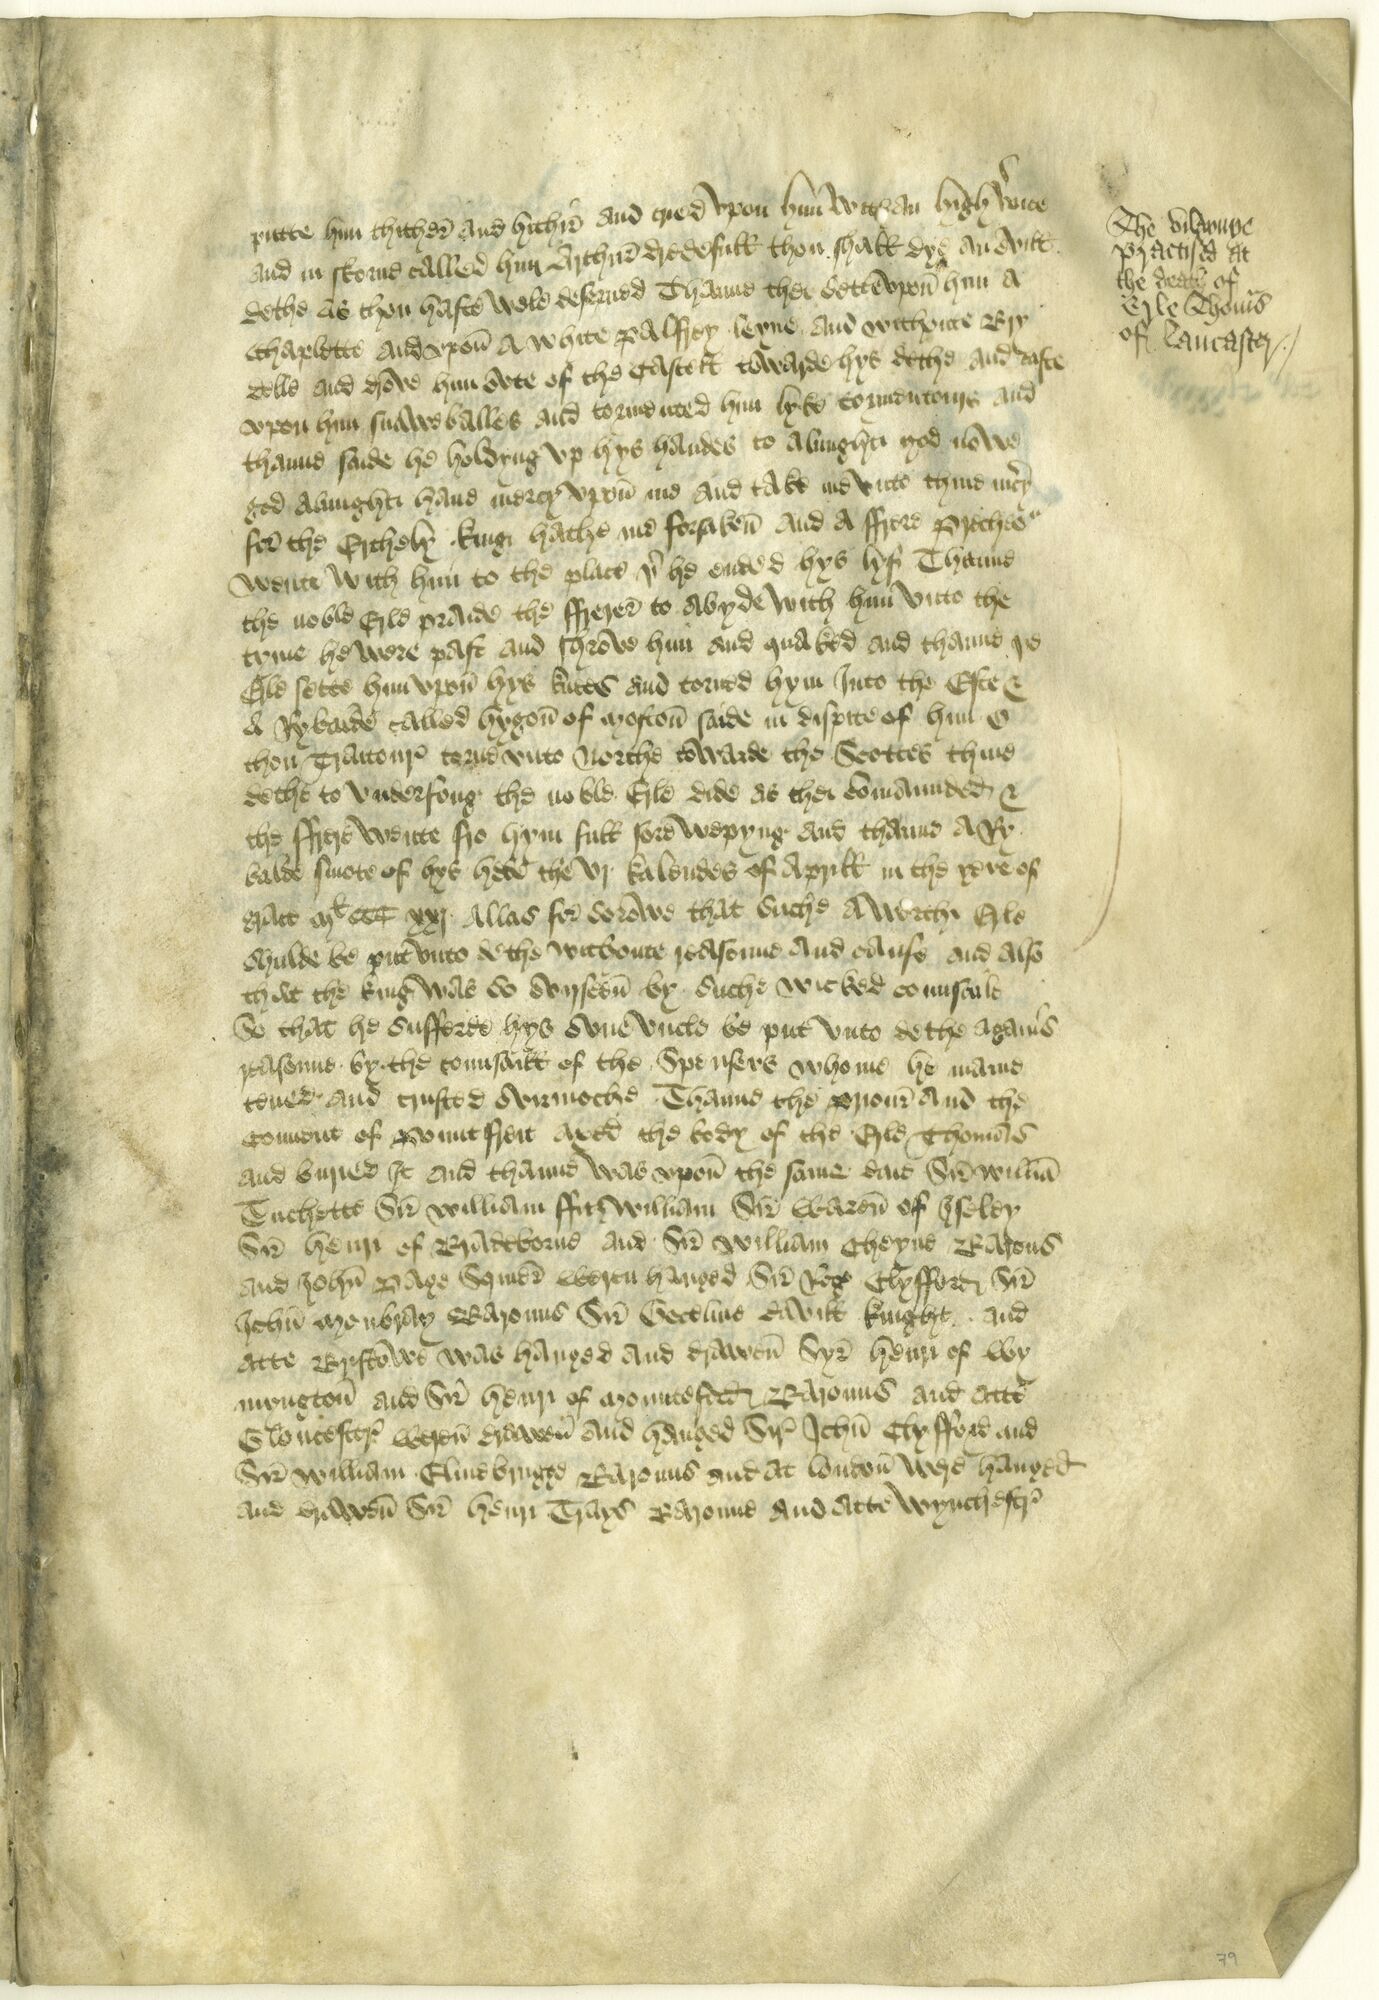 putte him thither̄ and hithir̄ and cried vpon him with an high voice
and in skorne called him Arthur̄ dredefull thou shall dye an evill
dethe as thou haste wele deserued Thanne thei sette vpon̄ him a
Chaplette and vpon̄ a white Palffrey leyne and withoute Bry
delle and drove him oute of the Castell towarde hys dethe and caste
vpon him snaweballes and tormented him lyke tormentours and
thanne saide he holdyng vp hys handes to almighti god nowe
god almighti haue mercy vpon̄ me and take me vnto thine mercy
for̄ the Erthely king hathe me forsaken̄ and a ffrere Prechour
wente with him to the place þer he ended hys lyf Thanne
the noble Erle praide the ffrerer̄ to abyde with him vnto the
tyme he were past and shrove him and quaked and thanne þe
Erle sette him vpon̄ hys knees and torned hym Into the Este &
a Rybaude called hygon̄ of moston̄ saide in dispite of him O
thou Traitour torne vnto Northe towarde the Scottes thine
dethe to vnderfong the noble Erle dide as thei comaunded &
the ffrere wente fro hym full sore wepyng and thanne a Ry
balde smote of hys hede the vj kalendes of Aprill in the yere of
grace Ml CCC xxj Allas for̄ sorowe that suche a worthi Erle
shulde be put vnto dethe withoute reasonne and cause and also
that the king was so dysseu̅ by suche wicked counsaile
So that he suffered hys owne vncle be put vnto dethe agains
reasonne by the counsaill of the Spensers whome he maine
tened and trusted ovirmoche Thanne the Priour̄ and the
Couent of Pountffreit axed the body of the Erle Thomas
and buried It and thanne was vpon̄ the same daie Sir̄ Willia̅
Tuchette Sir̄ William ffitzwilliam Sir̄ Waren̄ of Iseley
Sir̄ Henri of Bradeborne and Sir̄ William Cheyne Barons
and John̄ Page Squier̄ weren hanged Sir̄ Rog Clyfford Sir̄
John̄ Moubray Baronns Sir̄ Gocelme Davill knight and
atte Bristowe was hanged and drawen̄ Syr̄ Henri of Wy
myngton̄ and Sir̄ Henri of Mountford Baronns and atte
Glouicestr weren̄ drawen̄ and hanged Sir John̄ Clyfford and
Sir̄ William Elmebrugge Baronns and at london̄ were hanged
and drawen̄ Sir̄ Henri Trays Baronne and atte Wynchestr
The
practised at
the death of
Erle Thom̄s
of Lancaster
79